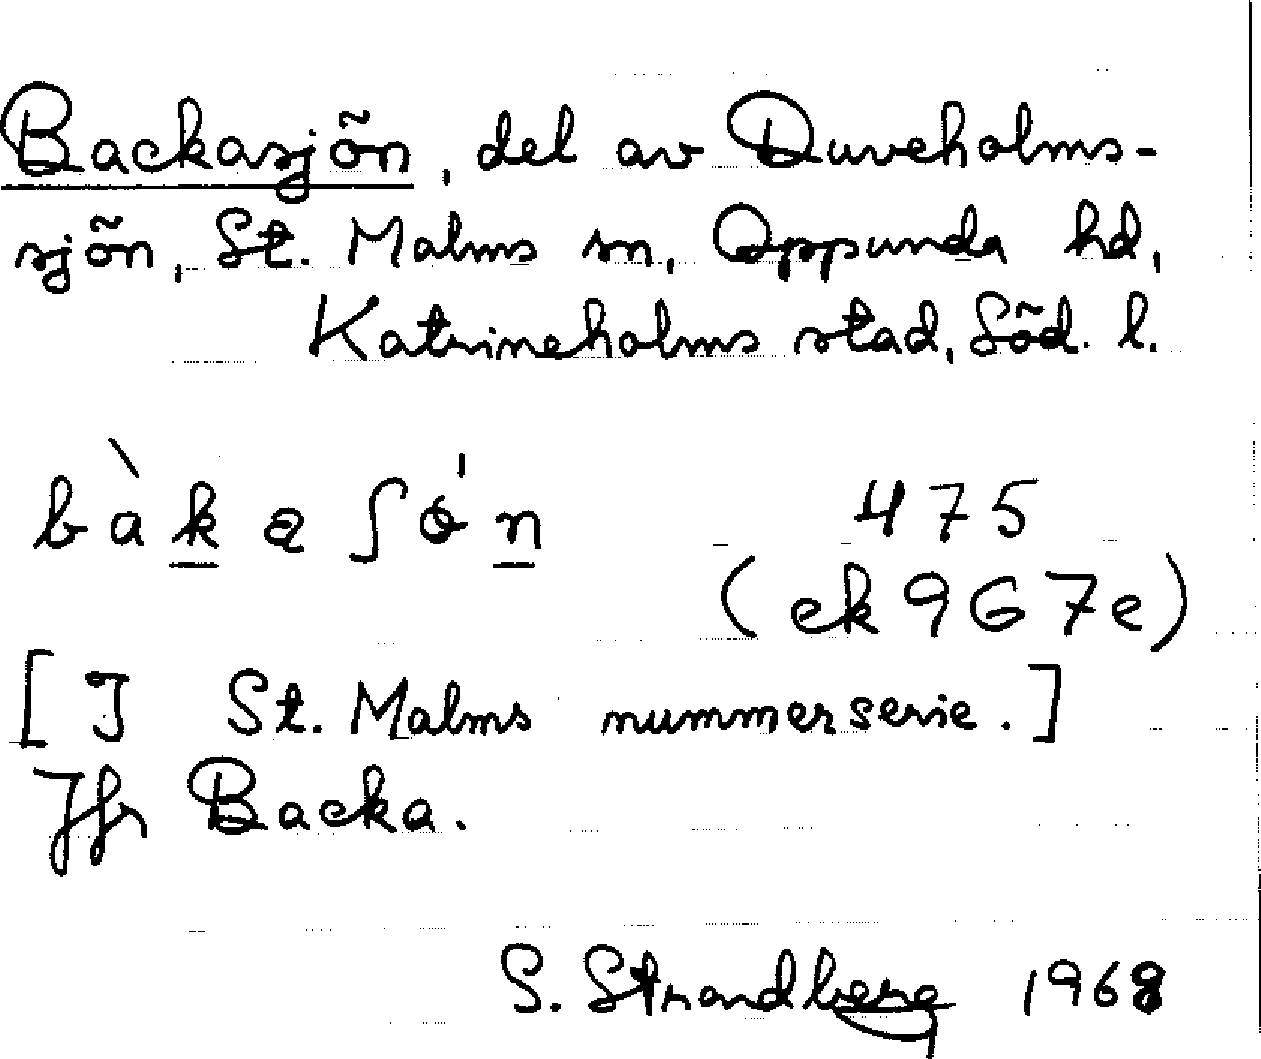 Backasjön, del av Duveholms-
sjön, St. Malms sn, Oppunda hd,
Katrineholms stad, Söd. l.
bàkaʃǿn 475
(ek 967e)
[I St. Malms nummerserie.]
Jfr Backa.
S. Strandberg 1968